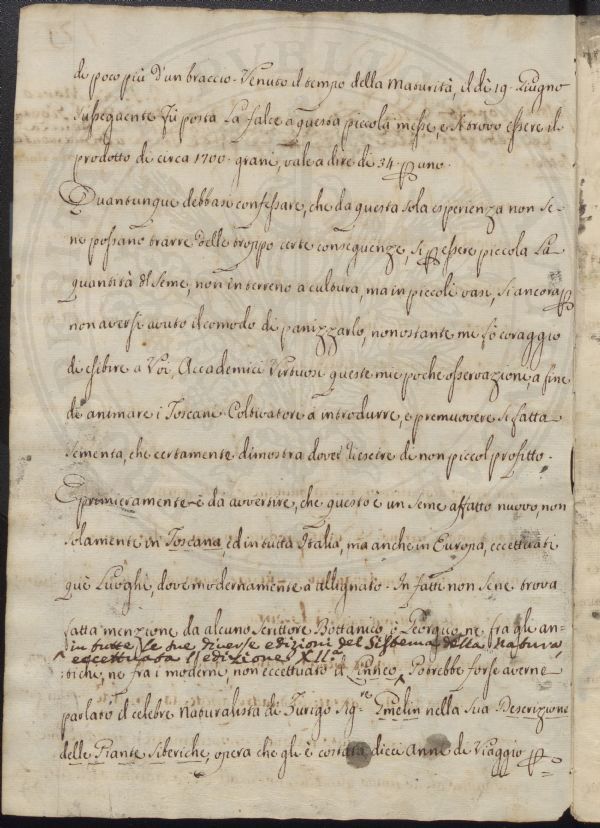 di poco più d'un braccio. Venuto il tempo della Maturità, il dì 19. Giugno
susseguente fù posta La falce a questa piccola messe, e si trovò essere il
prodotto di circa 1700. grani, vale a dire di 34. p uno.
Quantunque debbasi confessare, che da questa sola esperienza non se-
ne possano trarre delle troppo certe conseguenze, sì p essere piccola La
quantità del Seme, non in terreno a cultura, ma in piccoli vasi, sì ancora p
non aversi avuto il comodo di panizzarlo, nonostante mi fò coraggio
di esibire a Voi, Accademici Virtuosi queste mie poche osservazioni, a fine
di animare i Toscani Coltivatori a introdurre, e promuovere sì fatta
Sementa, che certamente dimostra dover riescire di non piccol profitto.
E primieramente è da avvertire, che questo è un Seme affatto nuovo, non
solamente in Toscana, ed in tutta Italia, ma anche in Europa, eccettuati
què Luoghi, dove modernamente à allignato. In fatti non sene trova
fatta menzione da alcuno Scrittore Bottanico, ò Georgico, ne fra gli an-
in tutte le sue diverse edizioni del Sistema della Natura,
eccettuata l'edizione XII:
tichi, ne fra i moderni, non eccettuato il Linneo. Potrebbe forse averne
parlato il celebre Naturalista di Zurigo Sig.re Gmelin nella Sua Descrizione
delle Piante Siberiche, opera che gli è costata dieci Anni di Viaggio p